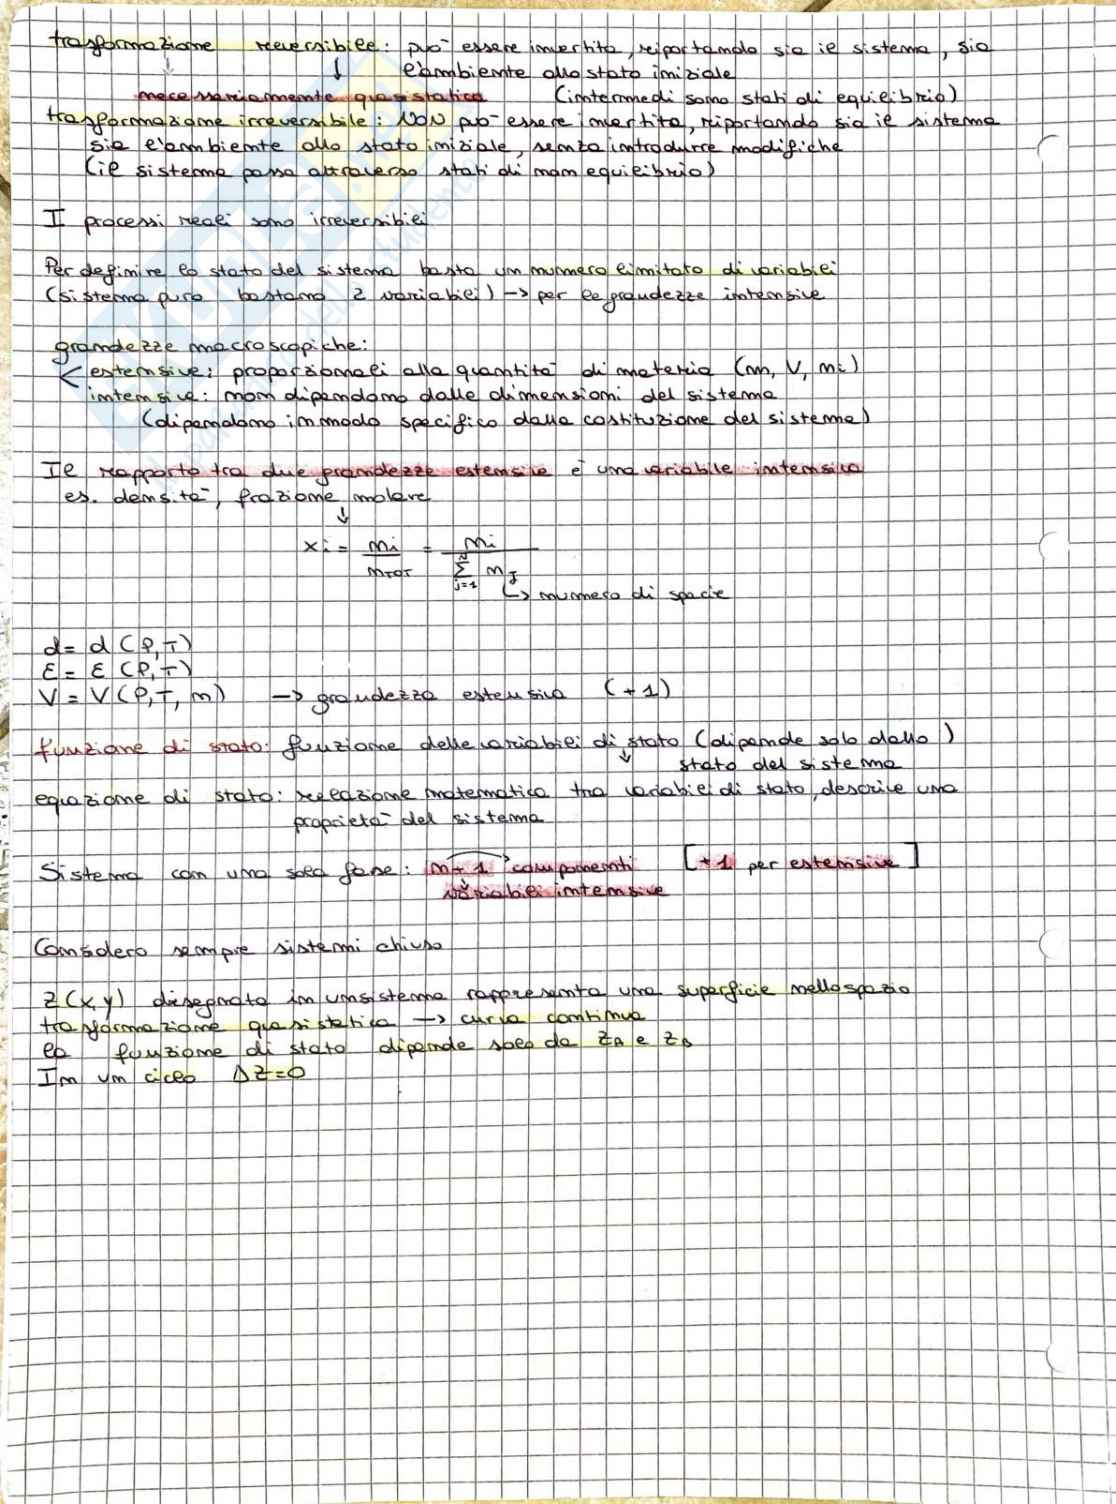 trasformazione reversibile: può essere invertita, riportando sia il sistema, sia
↓ l'ambiente allo stato iniziale
necessariamente quasistatica (intermedi sono stati di equilibrio)
trasformazione irreversibile: NON può essere invertita, riportando sia il sistema
sia l'ambiente allo stato iniziale, senza introdurre modifiche
(il sistema passa attraverso stati di non equilibrio)
I processi reali sono irreversibili
Per definire lo stato del sistema basta un numero limitato di variabili
(sistema puro bastano 2 variabili) → per le grandezze intensive
grandezze macroscopiche:
< estensive: proporzionali alla quantità di materia (m, V, ni)
intensive: non dipendono dalle dimensioni del sistema
(dipendono in modo specifico dalla costituzione del sistema)
Il rapporto tra due grandezze estensive è una variabile intensiva
es. densità, frazione molare
↓
xi = ni / nTOT = ni / N Σ j=1 nJ
↳ numero di specie
d = d (P,T)
ε = ε (P,T)
V = V (P,T,n) → grandezza estensiva (+1)
funzione di stato: funzione delle variabili di stato (dipende solo dallo)
↓ stato del sistema
equazione di stato: relazione matematica tra variabili di stato, descrive una
proprietà del sistema
Sistema con una sola fase: n+1 componenti [+1 per estensive]
variabili intensive
Considero sempre sistemi chiuso
Z(x,y) disegnata in un sistema rappresenta una superficie nello spazio
trasformazione quasistatica → curva continua
la funzione di stato dipende solo da ZA e ZB
In un ciclo ΔZ=0